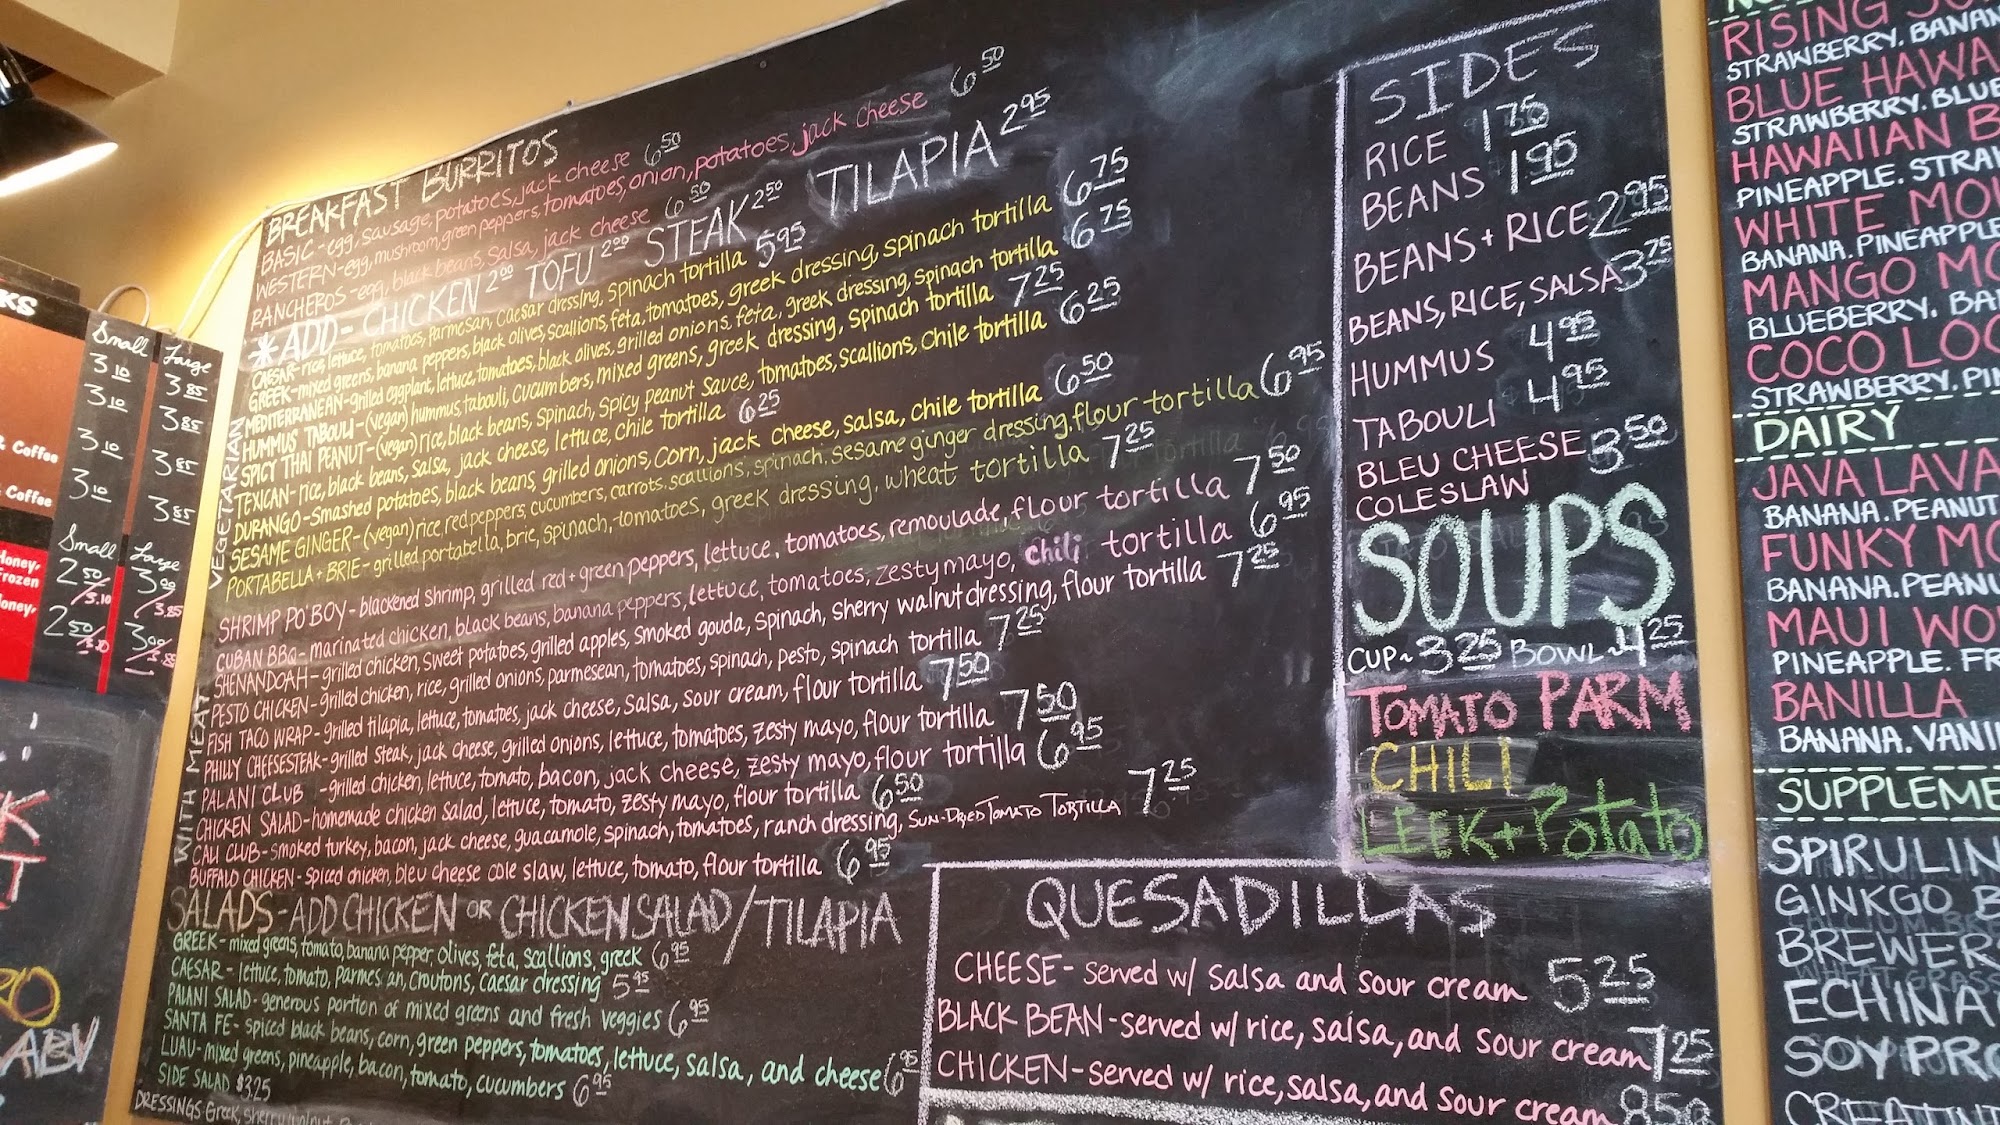 BREAKFAST BURRITOS
BASIC - egg, sausage, potatoes, jack cheese 6 50
WESTERN - egg, mushroom, green peppers, tomatoes, onion, potatoes, jack cheese 6 50
RANCHEROS - egg, black beans, salsa, jack cheese 6 50
*ADD - CHICKEN 2 00 TOFU 2 00 STEAK 2 50 TILAPIA 2 95
VEGETARIAN
CAESAR - rice, lettuce, tomatoes, parmesan, caesar dressing, spinach tortilla 5 95
GREEK - mixed greens, banana peppers, black olives, scallions, feta, tomatoes, greek dressing, spinach tortilla 6 75
MEDITERRANEAN - grilled eggplant, lettuce, tomatoes, black olives, grilled onions, feta, greek dressing, spinach tortilla 6 75
HUMMUS TABOULI - (vegan) hummus, tabouli, cucumbers, mixed greens, greek dressing, spinach tortilla 7 25
SPICY THAI PEANUT - (vegan) rice, black beans, spinach, spicy peanut sauce, tomatoes, scallions, chile tortilla 6 25
TEXICAN - rice, black beans, salsa, jack cheese, lettuce, chile tortilla 6 25
DURANGO - smashed potatoes, black beans, grilled onions, corn, jack cheese, salsa, chile tortilla 6 50
SESAME GINGER - (vegan) rice, red peppers, cucumbers, carrots, scallions, spinach, sesame ginger dressing, flour tortilla 6 95
PORTABELLA + BRIE - grilled portabella, brie, spinach, tomatoes, greek dressing, wheat tortilla 7 25
WITH MEAT
SHRIMP PO'BOY - blackened shrimp, grilled red + green peppers, lettuce, tomatoes, remoulade, flour tortilla 7 50
CUBAN BBQ - marinated chicken, black beans, banana peppers, lettuce, tomatoes, zesty mayo, chili tortilla 6 95
SHENANDOAH - grilled chicken, sweet potatoes, grilled apples, smoked gouda, spinach, sherry walnut dressing, flour tortilla 7 25
PESTO CHICKEN - grilled chicken, rice, grilled onions, parmesean, tomatoes, spinach, pesto, spinach tortilla 7 25
FISH TACO WRAP - grilled tilapia, lettuce, tomatoes, jack cheese, salsa, sour cream, flour tortilla 7 50
PHILLY CHEESESTEAK - grilled steak, jack cheese, grilled onions, lettuce, tomatoes, zesty mayo, flour tortilla 7 50
PALANI CLUB - grilled chicken, lettuce, tomato, bacon, jack cheese, zesty mayo, flour tortilla 6 95
CHICKEN SALAD - homemade chicken salad, lettuce, tomato, zesty mayo, flour tortilla 6 50
CALI CLUB - smoked turkey, bacon, jack cheese, guacamole, spinach, tomatoes, ranch dressing, SUN-DRIED TOMATO TORTILLA 7 25
BUFFALO CHICKEN - spiced chicken, bleu cheese cole slaw, lettuce, tomato, flour tortilla 6 95
SALADS - ADD CHICKEN OR CHICKEN SALAD/TILAPIA
GREEK - mixed greens, tomato, banana pepper, olives, feta, scallions, greek 6 95
CAESAR - lettuce, tomato, parmesan, croutons, caesar dressing 5 95
PALANI SALAD - generous portion of mixed greens and fresh veggies 6 95
SANTA FE - spiced black beans, corn, green peppers, tomatoes, lettuce, salsa, and cheese 6 95
LUAU - mixed greens, pineapple, bacon, tomato, cucumbers 6 95
SIDE SALAD $3.25
DRESSINGS - Greek, sherry walnut,
SIDES
RICE 1 75
BEANS 1 95
BEANS + RICE 2 95
BEANS, RICE, SALSA 3 75
HUMMUS 4 95
TABOULI 4 95
BLEU CHEESE 3 50
COLESLAW
SOUPS
CUP ~ 3 25 BOWL ~ 4 25
TOMATO PARM
CHILI
LEEK + Potato
QUESADILLAS
CHEESE - served w/ salsa and sour cream 5 25
BLACK BEAN - served w/ rice, salsa, and sour cream 7 25
CHICKEN - served w/ rice, salsa, and sour cream 8 50
KS
Small Large
3.10 3.85
3.10 3.85
3.10 3.85
3.10 3.85
& Coffee
& Coffee
Small Large
Honey,
Frozen
Honey,
2 50/3.10 3 00/3.85
2 50/3.10 3 00/3.85
ABV
RISING
STRAWBERRY. BANAN
BLUE HAWA
STRAWBERRY. BLUE
HAWAIIAN B
PINEAPPLE. STRA
WHITE MO
BANANA. PINEAPPLE
MANGO MO
BLUEBERRY. BA
COCO LOC
STRAWBERRY. PIN
DAIRY
JAVA LAVA
BANANA. PEANUT
FUNKY MO
BANANA. PEANU
MAUI WO
PINEAPPLE. FR
BANILLA
BANANA. VANI
SUPPLEME
SPIRULIN
GINKGO B
BREWERS
ECHINA
SOY PRO
CREATIN